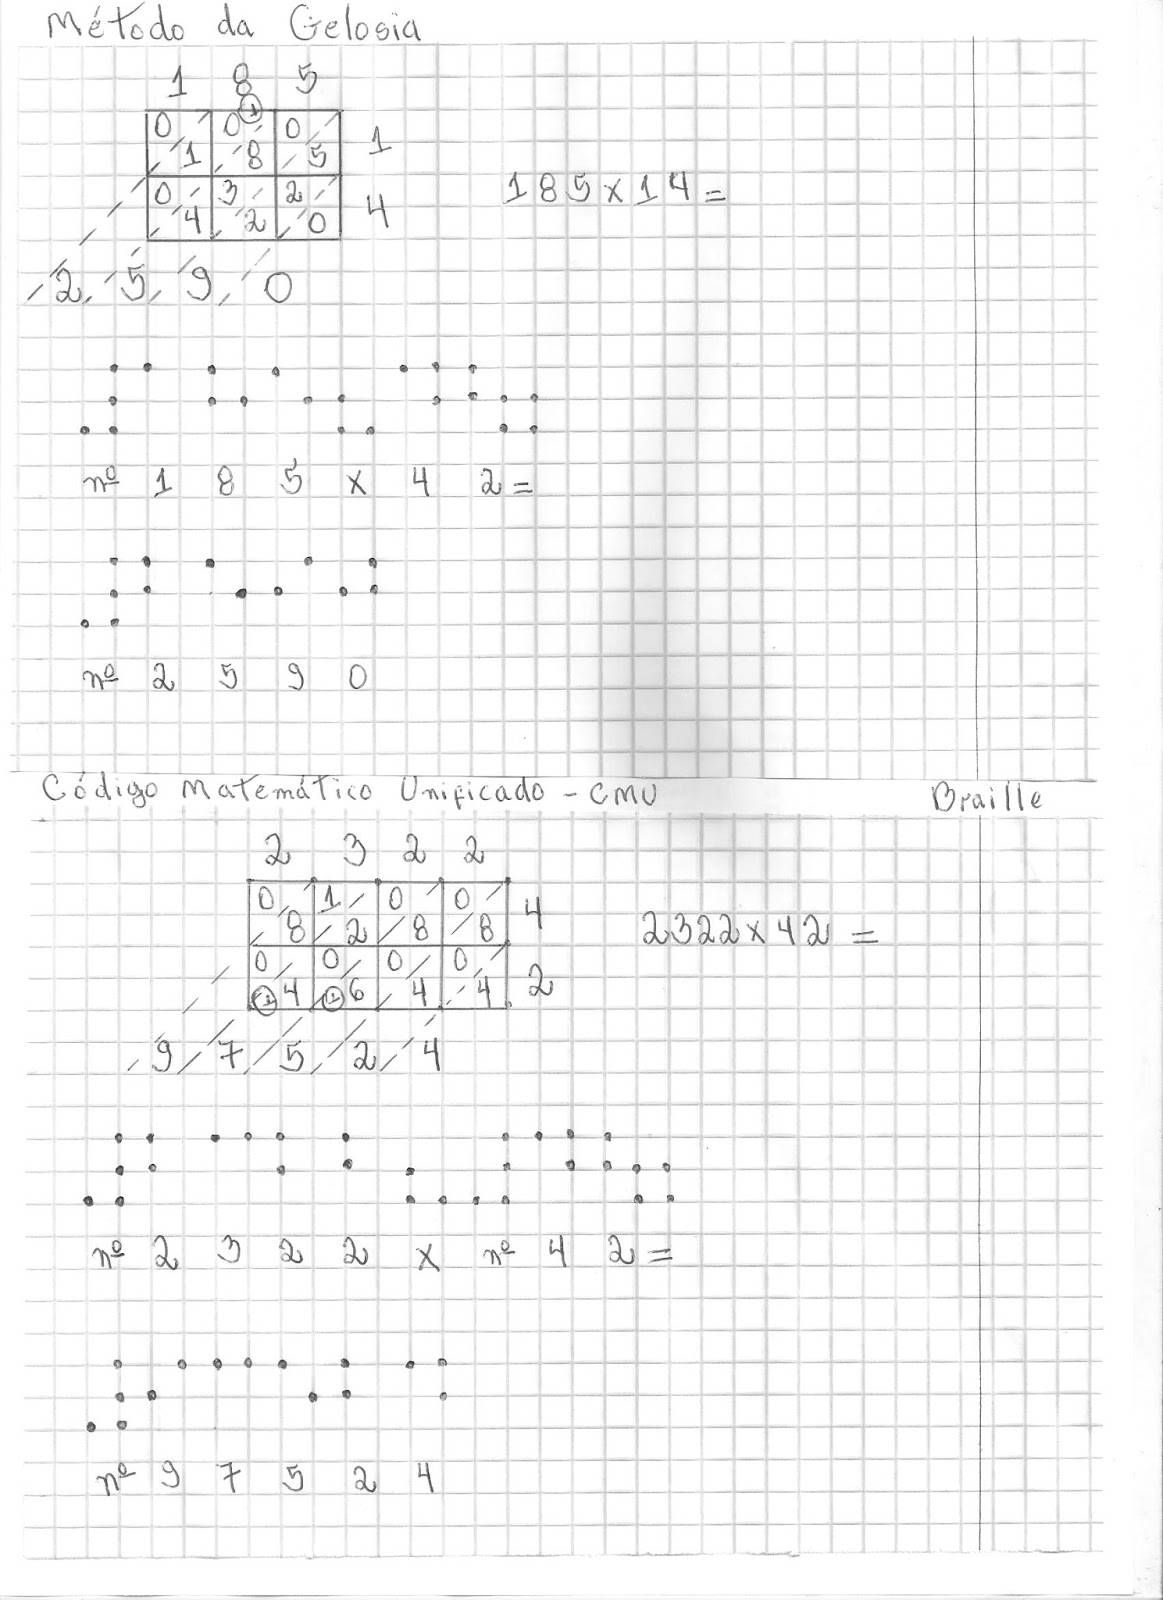 Método da Gelosia
1 8 5
0 0 1 0
1 8 5 1
185x14=
0 3 2
4 2 0 4
2 5 9 0
nº 1 8 5 x 4 2=
nº 2 5 9 0
Código Matemático Unificado - CMU Braille
2 3 2 2
0 1 0 0
8 2 8 8 4
2322x42 =
0 0 0 0
1 4 1 6 4 4 2
9 7 5 2 4
nº 2 3 2 2 x nº 4 2=
nº 9 7 5 2 4